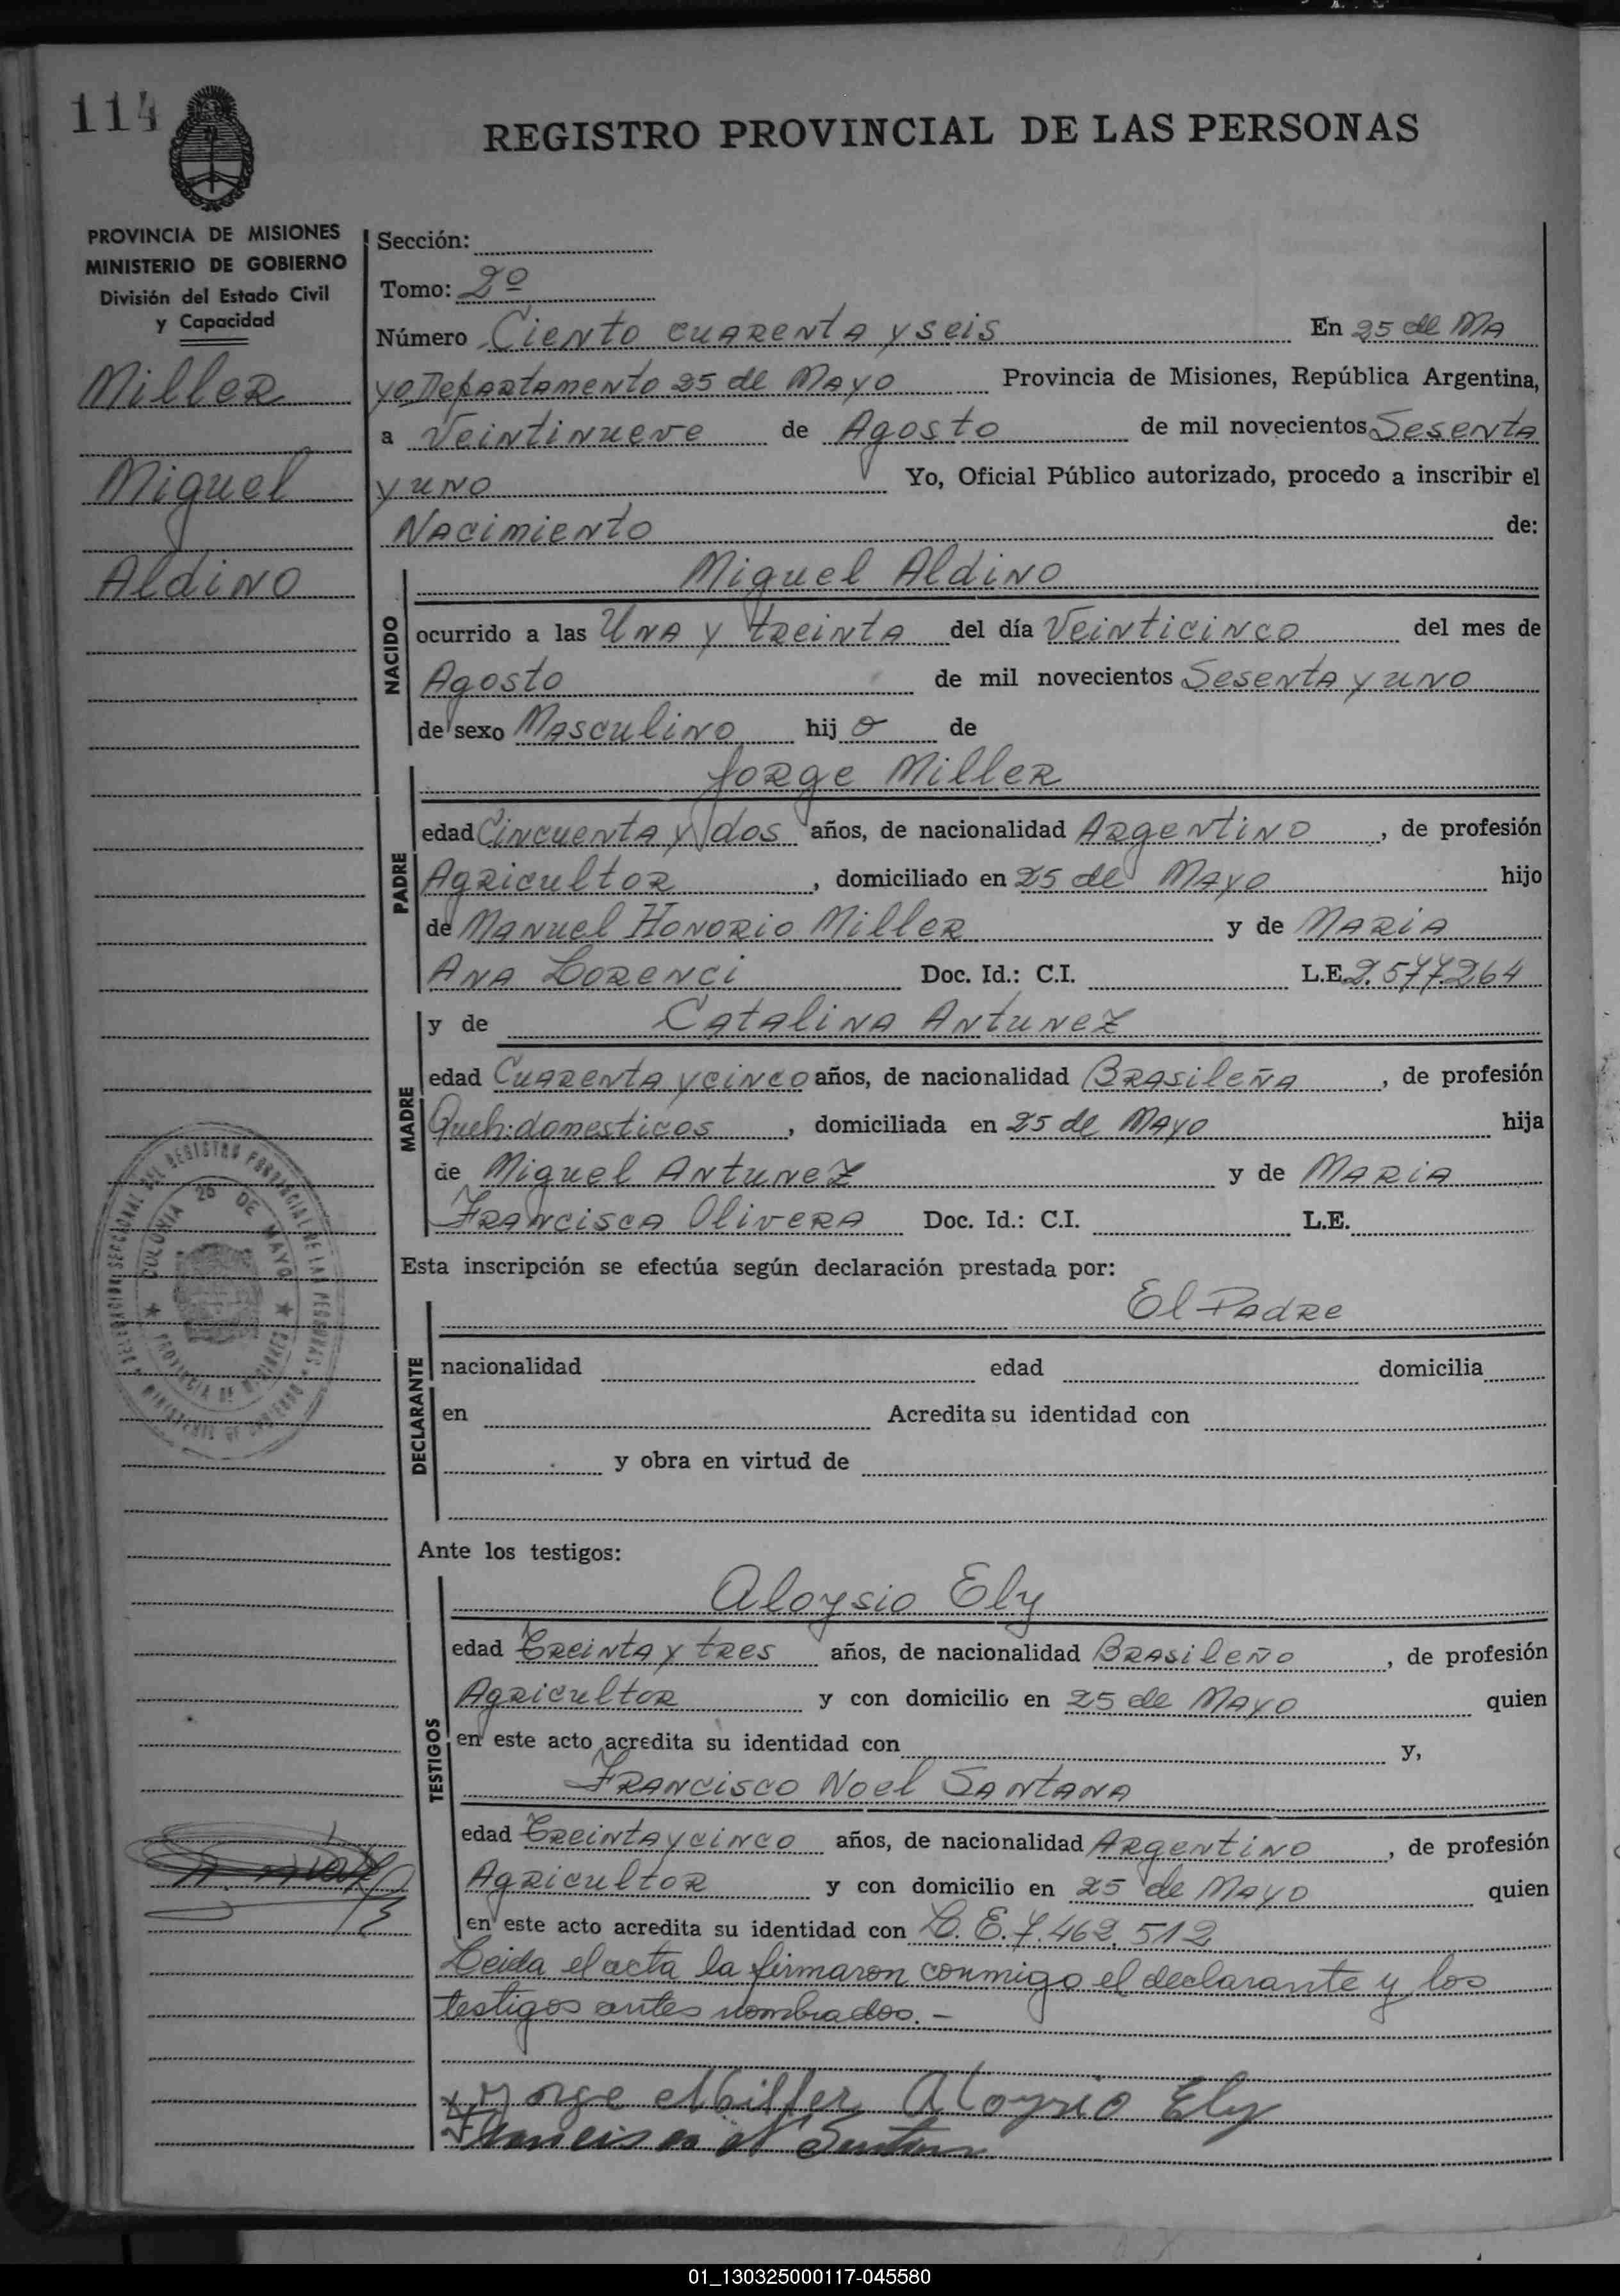 114
REGISTRO PROVINCIAL DE LAS PERSONAS
PROVINCIA DE MISIONES
MINISTERIO DE GOBIERNO
División del Estado Civil
y Capacidad
Miller
Miguel
Aldino
Sección:
Tomo: 2º
Número Ciento cuarenta y seis En 25 de Ma
yo Departamento 25 de Mayo Provincia de Misiones, República Argentina,
a Veintinueve de Agosto de mil novecientos Sesenta
y uno Yo, Oficial Público autorizado, procedo a inscribir el
Nacimiento de:
NACIDO
Miguel Aldino
ocurrido a las Una y treinta del día Veinticinco del mes de
Agosto de mil novecientos Sesenta y uno
de sexo Masculino hij o de
PADRE
Jorge Miller
edad Cincuenta y dos años, de nacionalidad Argentino, de profesión
Agricultor, domiciliado en 25 de Mayo hijo
de Manuel Honorio Miller y de Maria
Ana Lorenci Doc. Id.: C.I. L.E. 2.577.264
MADRE
y de Catalina Antunez
edad Cuarenta y cinco años, de nacionalidad Brasileña, de profesión
Queh: domesticos, domiciliada en 25 de Mayo hija
de Miguel Antunez y de Maria
Francisca Olivera Doc. Id.: C.I. L.E.
Esta inscripción se efectúa según declaración prestada por:
DECLARANTE
El Padre
nacionalidad edad domicilia
en Acredita su identidad con
y obra en virtud de
Ante los testigos:
TESTIGOS
Aloysio Ely
edad Treinta y tres años, de nacionalidad Brasileño, de profesión
Agricultor y con domicilio en 25 de Mayo quien
en este acto acredita su identidad con y,
Francisco Noel Santana
edad Treinta y cinco años, de nacionalidad Argentino, de profesión
Agricultor y con domicilio en 25 de Mayo quien
en este acto acredita su identidad con L. E. 7.462.512
Leida el acta la firmaron conmigo el declarante y los
testigos antes nombrados.-
Jorge Miller Aloysio Ely
Francisco N Santana
COLONIA 25 DE MAYO
PROVINCIA DE MISIONES
MINISTERIO DE GOBIERNO
01_130325000117-045580